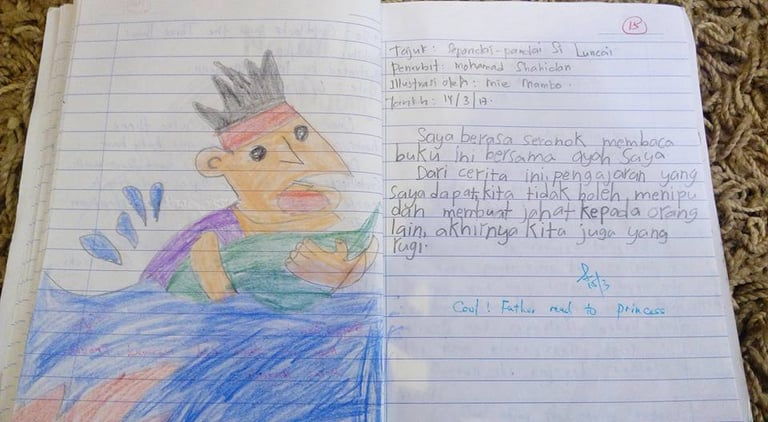 15
Tajuk: Sepandai-pandai Si Luncai
Penerbit: Mohamad Shahidan
Illustrasi oleh: Mie Mambo.
Tarikh: 14/3/17.
Saya berasa seronok membaca
buku ini bersama ayah saya
Dari cerita ini, pengajaran yang
saya dapat, kita tidak boleh menipu
dan membuat jahat kepada orang
lain, akhirnya kita juga yang
rugi.
15/3
Cool! Father read to princess